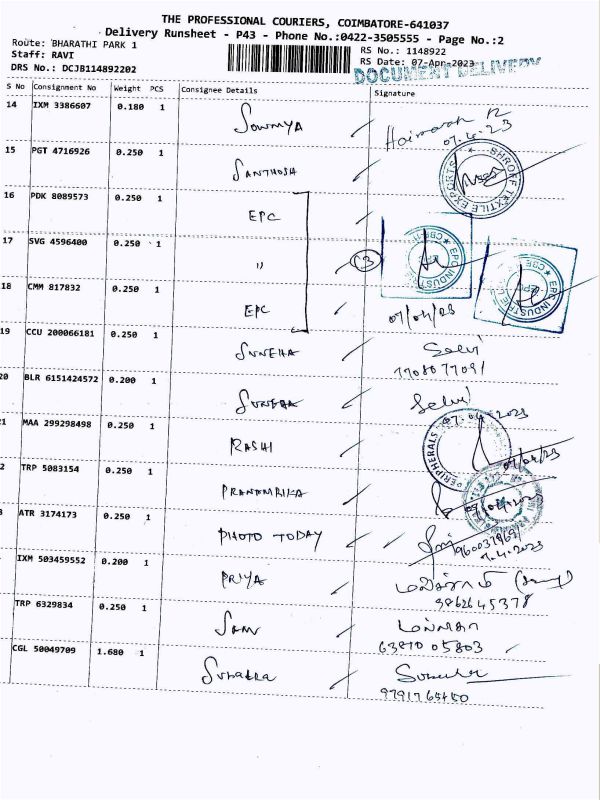 THE PROFESSIONAL COURIERS, COIMBATORE-641037
Delivery Runsheet - P43 - Phone No.:0422-3505555 - Page No.:2
Route: BHARATHI PARK 1
RS No.: 1148922
Staff: RAVI
RS Date: 07-Apr-2023
DRS No.: DCJB114892202
DOCUMENT DELIVERY
S No Consignment No Weight PCS Consignee Details Signature
14 IXM 3386607 0.180 1 Sowmya
07.4.23
15 PGT 4716926 0.250 1 Santhosh
SHROFF TEXTILE EXPORTS
16 PDK 8089573 0.250 1 EPC
17 SVG 4596400 0.250 1 " (3)
EPC INDUSTRIE CBE
EPC INDUSTRIE CBE
18 CMM 817832 0.250 1 EPC 07/04/23
19 CCU 200066181 0.250 1 Suneha Selvi
7708077091
20 BLR 6151424572 0.200 1 Suneha Selvi
07.04.2023
21 MAA 299298498 0.250 1 Rashi
PERIPHERALS
07/04/23
2 TRP 5083154 0.250 1
07/04/2023
3 ATR 3174173 0.250 1 PHOTO TODAY
7.4.2023
IXM 503459552 0.200 1 PRIYA
9862645378
TRP 6329834 0.250 1 Sam
6381005803
CGL 50049709 1.680 1